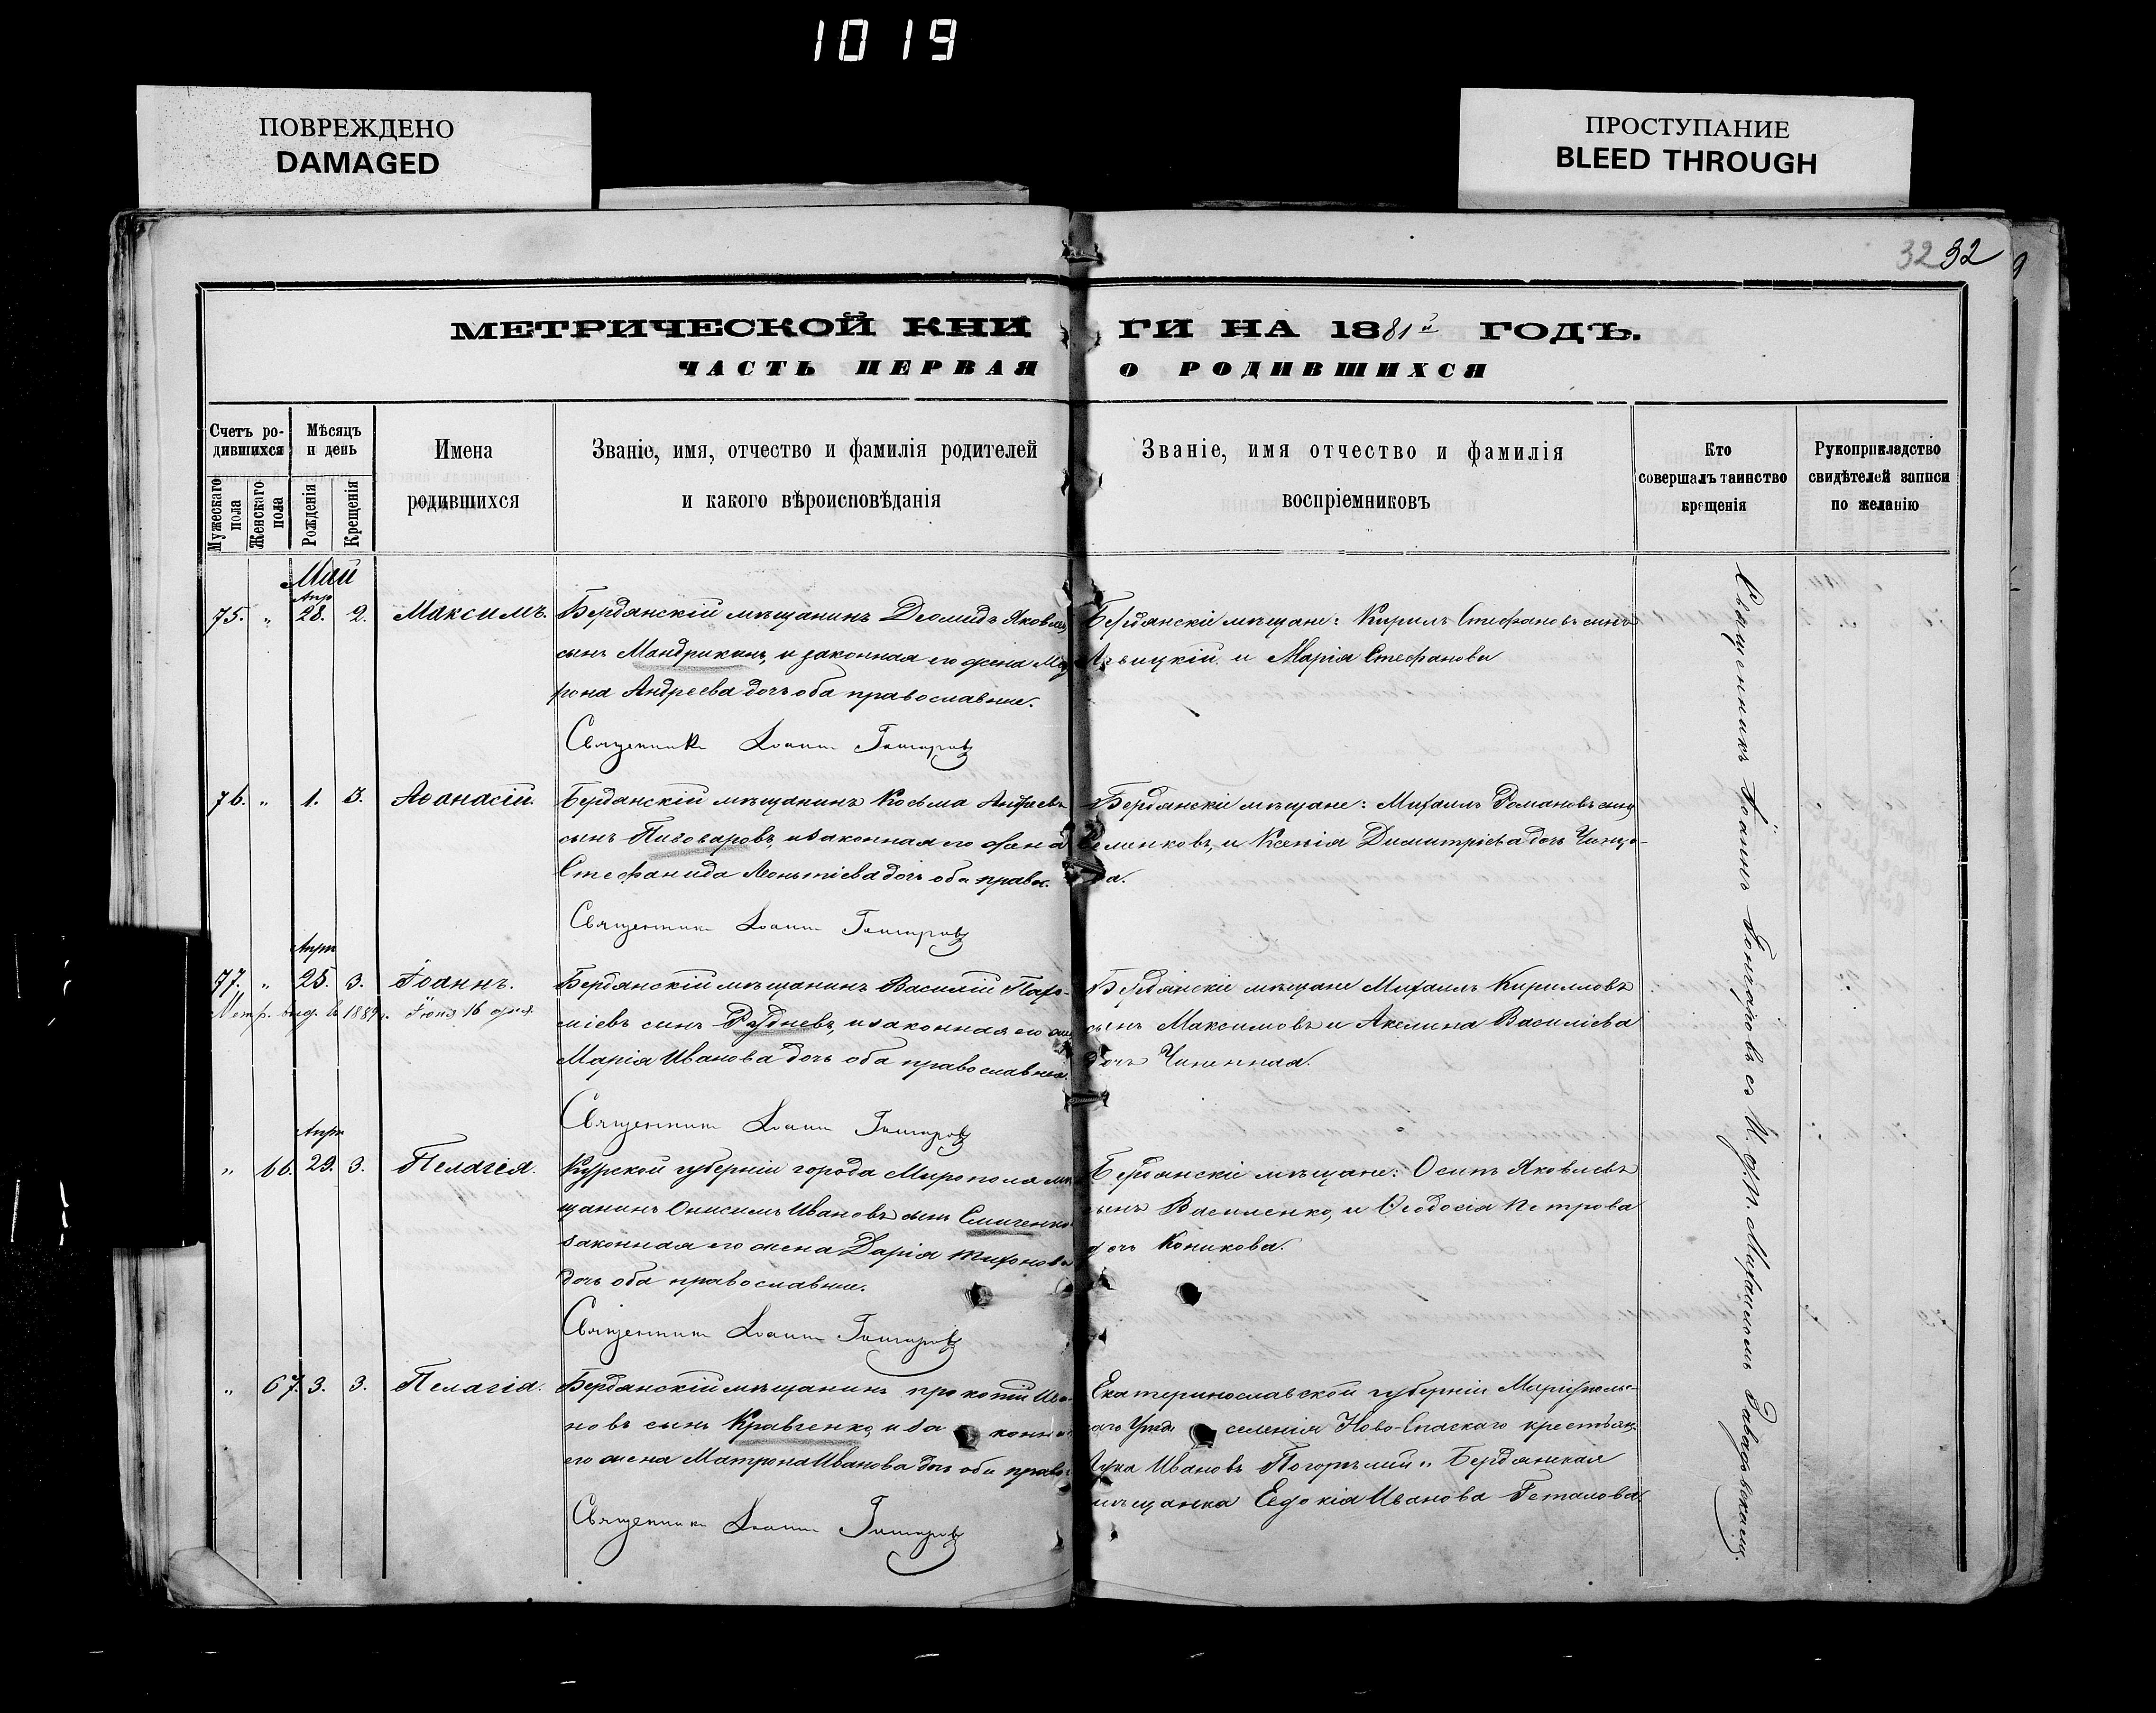 1019
ПОВРЕЖДЕНО
DAMAGED
ПРОСТУПАНИЕ
BLEED THROUGH
32 32
МЕТРИЧЕСКОЙ КНИГИ НА 1881й ГОДЪ.
ЧАСТЬ ПЕРВАЯ О РОДИВШИХСЯ
Счетъ родившихся
Мужескаго пола
Женскаго пола
Мѣсяцъ и день
Рожденія
Крещенія
Имена
родившихся
Званіе, имя, отчество и фамилія родителей
и какого вѣроисповѣданія
Званіе, имя отчество и фамилія
воспріемниковъ
Кто
совершалъ таинство
крещенія
Рукоприкладство
свидѣтелей записи
по желанію
Май
Апр
75. " 28. 2. Максимъ.
Бердянскій мѣщанинъ Диомидъ Яковлевъ
сынъ Мандрикинъ, и законная его жена Мат
рона Андреева дочь оба православные.
Священникъ Іоаннъ Гончаровъ
Бердянскіе мѣщане: Кирилъ Стефановъ сынъ
и Марія Стефанова
76. " 1. 3. Аѳанасій.
Бердянскій мѣщанинъ Косьма Андреевъ
сынъ Пивоваровъ, и законная его жена
Стефанида Леонтіева дочь оба правос.
Священникъ Іоаннъ Гончаровъ
Бердянскіе мѣщане: Михаилъ Романовъ сынъ
и Ксенія Димитріева дочь
Апрл
77. " 25. 3. Іоаннъ.
Метр. выд. въ 1889 г. Іюня 16 дня
Бердянскій мѣщанинъ Василій Пар-
сынъ Рудневъ, и законная его жена
Марія Иванова дочь оба православные.
Священникъ Іоаннъ Гончаровъ
Бердянскіе мѣщане Михаилъ Кирилловъ
сынъ Максимовъ и Акелина Василіева
дочь
Апрл
" 66. 29. 3. Пелагія.
Курской губерніи города Мирополя мѣ
щанинъ Онисимъ Ивановъ сынъ
законная его жена Дарія Тихонова
дочь оба православные.
Священникъ Іоаннъ Гончаровъ
Бердянскіе мѣщане: Осипъ Яковлевъ
сынъ Василенко, и Ѳеодосія Петрова
дочь Коникова.
" 67. 3. 3. Пелагія.
Бердянскій мѣщанинъ Прокопій Ива-
новъ сынъ Кравченко, и законная
его жена Матрона Иванова дочь оба правос
Священникъ Іоаннъ Гончаровъ
Екатеринославской губерніи Маріуполь-
скаго уѣзда селенія Ново-Спаскаго крестьян.
Лука Ивановъ Погорѣлий и Бердянская
мѣщанка Евдокія Иванова Геталова.
Священникъ Іоаннъ Гончаровъ съ И. д. п. Михаиломъ Завадовскимъ.